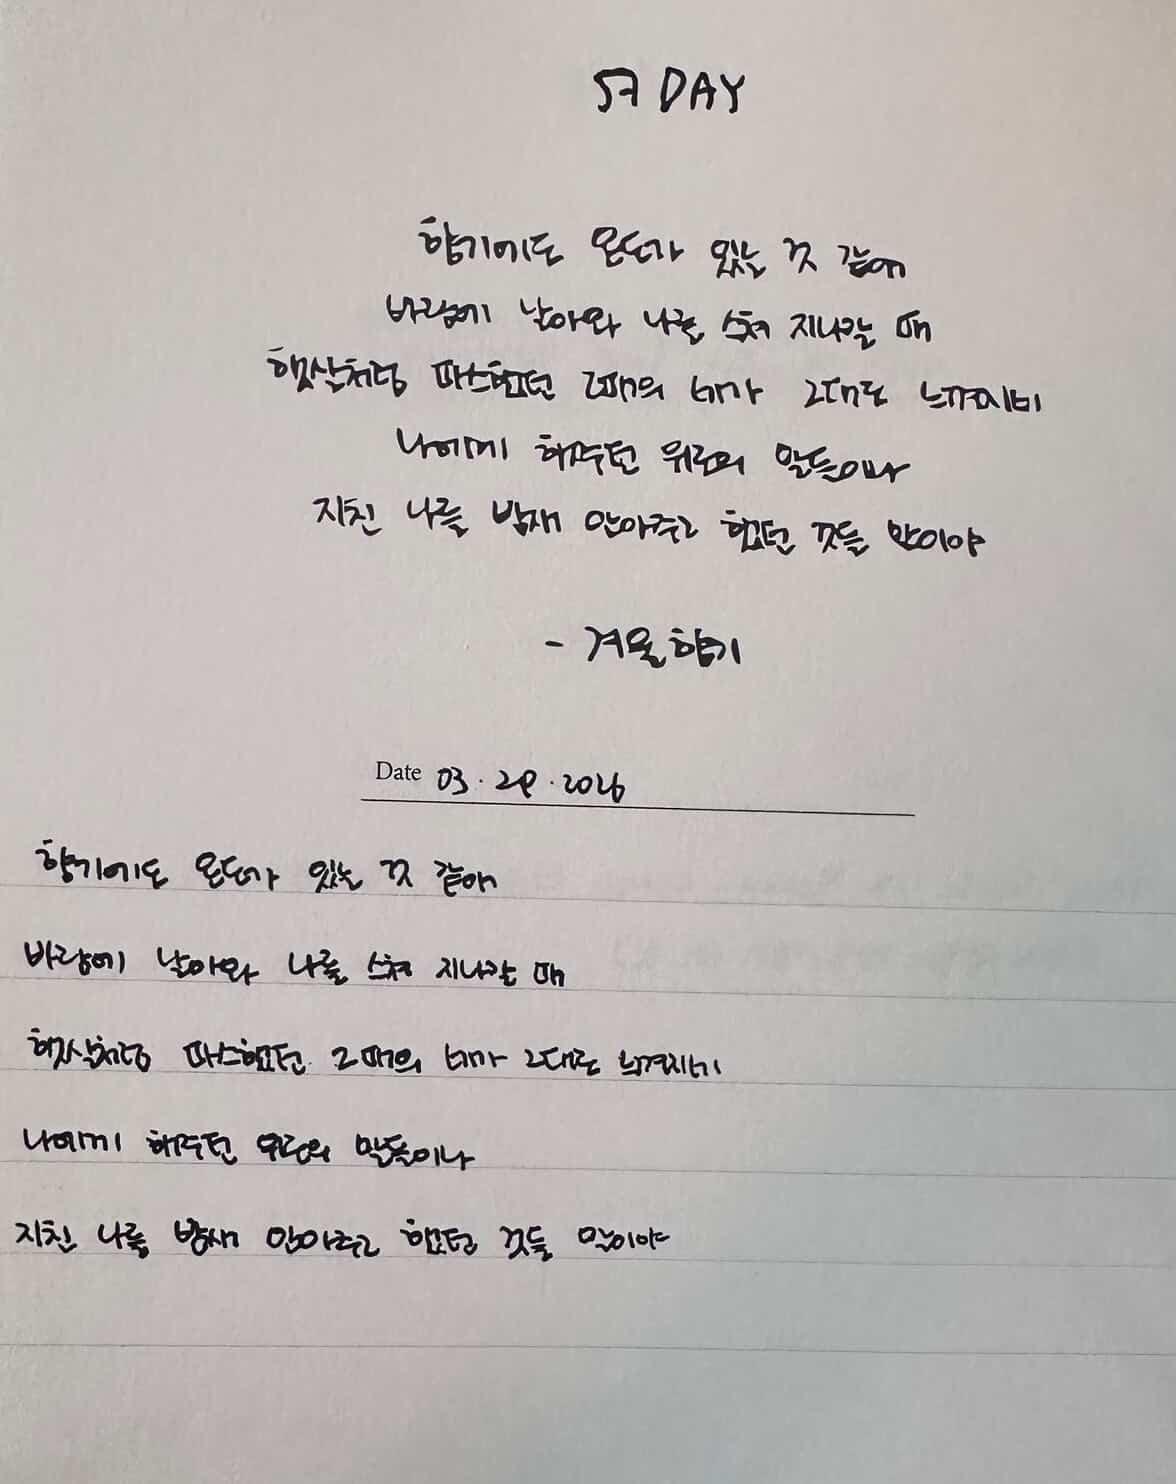 57 DAY
향기에도 온도가 있는 것 같애
바람에 날아와 나를 스쳐 지나갈 때
햇살처럼 따스했던 그때의 너가 그대로 느껴지니
나에게 해주던 위로의 말들이나
지친 나를 밤새 안아주고 했던 것들 말이야
- 겨울향기
Date 03.29.2026
향기에도 온도가 있는 것 같애
바람에 날아와 나를 스쳐 지나갈 때
햇살처럼 따스했던 그때의 너가 그대로 느껴지니
나에게 해주던 위로의 말들이나
지친 나를 밤새 안아주고 했던 것들 말이야